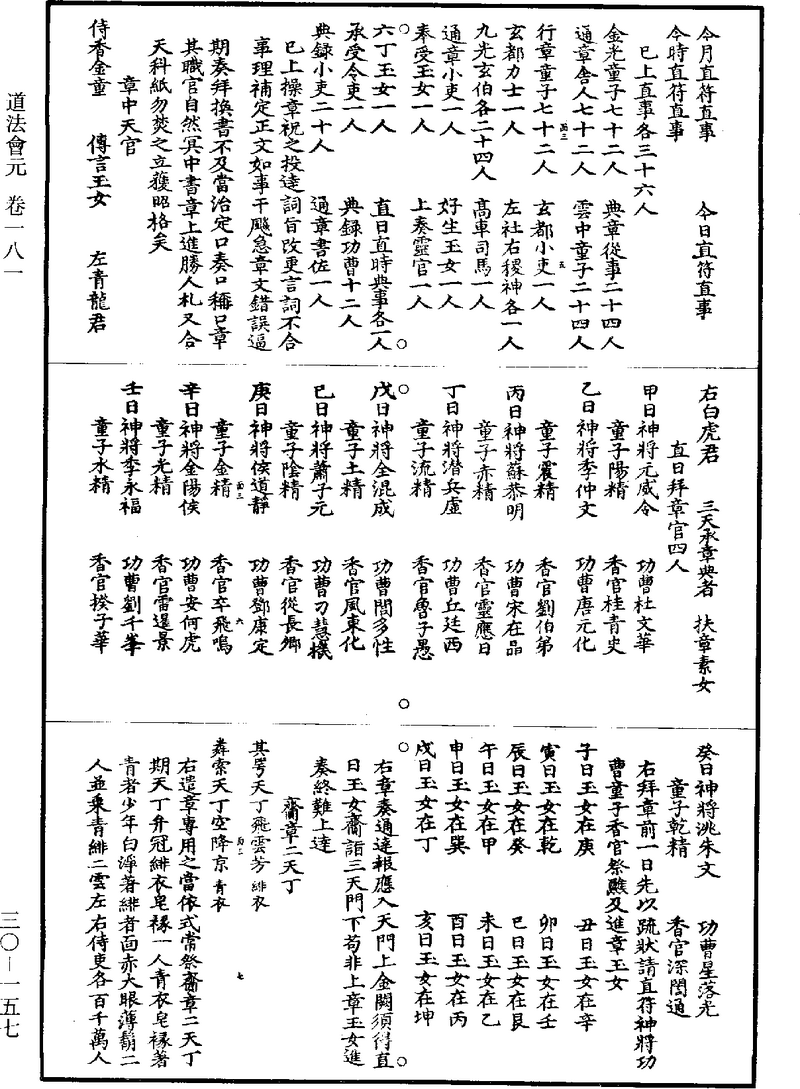 今月直符直事　今日直符直事
今時直符直事
已上直事各三十六人
金光童子七十二人　典章從事二十四人
通章舍人七十二人　雲中童子二十四人
行章童子七十二人　玄都小吏一人
玄都力士一人　左社右稷神各一人
九光玄伯各二十四人　高車司馬一人
通章小吏一人　好生玉女一人
奉受玉女一人　上奏靈官一人
六丁玉女一人　直日直時典事各一人
承受令吏一人　典錄功曹十二人
典錄小吏二十人　通章書佐一人
已上操章祝之投達詞旨改更言詞不合
事理補定正文如事干颷急章文錯誤逼
期奏拜換書不及當治定口奏口稱口章
其職官自然冥中書章上進勝人札又合
天科紙勿焚之立獲昭格矣
章中天官
侍香金童　傳言玉女　左青龍君
右白虎君　三天承章典者　扶章素女
直日拜章官四人
甲日神將元威令　功曹杜文華
童子陽精　香官桂青史
乙日神將李仲文　功曹唐元化
童子震精　香官劉伯第
丙日神將蘇恭明　功曹宋在品
童子赤精　香官靈應日
丁日神將潜兵虛　功曹丘廷西
童子流精　香官魯子愚
戊日神將全混成　功曹閻多性
童子土精　香官風東化
已日神將蕭子元　功曹刁慧機
童子陰精　香官從長鄉
庚日神將侯道靜　功曹鄧康定
童子金精　香官卒飛鳴
辛日神將金陽侯　功曹安何虎
童子光精　香官雷暹景
壬日神將李永福　功曹劉千峯
童子水精　香官揆子華
癸日神將洮朱文　功曹星落光
童子乾精　香官深閏通
右拜章前一日先以疏狀請直符神將功
曹童子香官祭醊及進章玉女
子日玉女在庚　丑日玉女在辛
寅日玉女在乾　卯日玉女在壬
辰日玉女在癸　巳日玉女在艮
午日玉女在甲　未日玉女在乙
申日玉女在巽　酉日玉女在丙
戌日玉女在丁　亥日玉女在坤
右章奏通達報應入天門上金闕須得直
日玉女齎詣三天門下苟非上章玉女進
奏終難上達
齎章二天丁
其咢天丁飛雲芳緋衣
犇索天丁空降京青衣
右遣章專用之當依式常祭齎章二天丁
期天丁弁冠緋衣皂緣一人青衣皂緣著
青者少年白淨著緋者面赤大眼薄鬍二
人並乘青緋二雲左右侍吏各百千萬人
道法會元　卷一八一
三〇—一五七